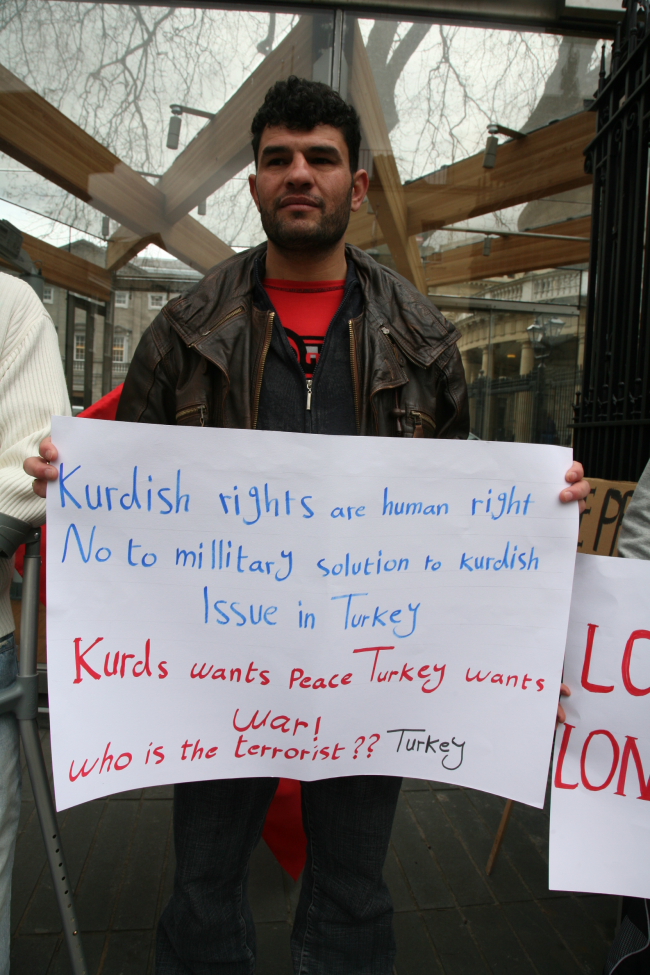 Kurdish rights are human right
No to millitary solution to kurdish
Issue in Turkey
Kurds wants Peace Turkey wants
war!
who is the terrorist?? Turkey
LO
LON